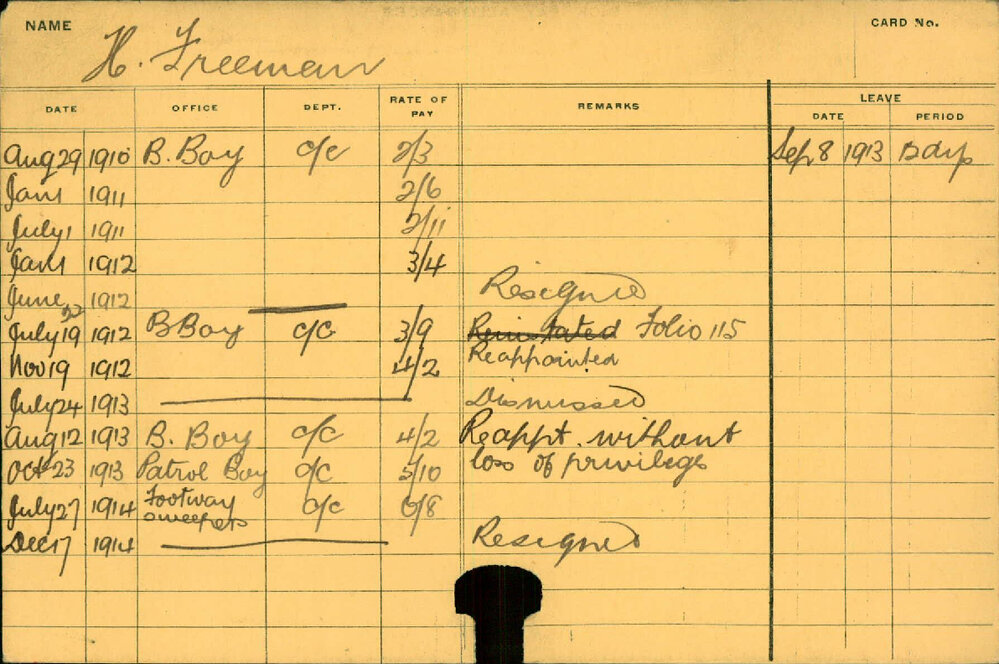 NAME H. Freeman CARD No.
DATE OFFICE DEPT. RATE OF PAY REMARKS LEAVE
DATE PERIOD
Aug 29 1910 B. Boy c/c 2/3 Sep 8 1913 days
Jan 1 1911 2/6
July 1 1911 2/11
Jan 1 1912 3/4
June 22 1912 Resigned
July 19 1912 B Boy c/c 3/9 Reinstated Folio 115
Nov 19 1912 4/2 Reappointed
July 24 1913 Dismissed
Aug 12 1913 B. Boy c/c 4/2 Reappt. without
Oct 23 1913 Patrol Boy c/c 5/10 loss of privilege
July 27 1914 Footway sweepers c/c 6/8
Dec 17 1914 Resigned